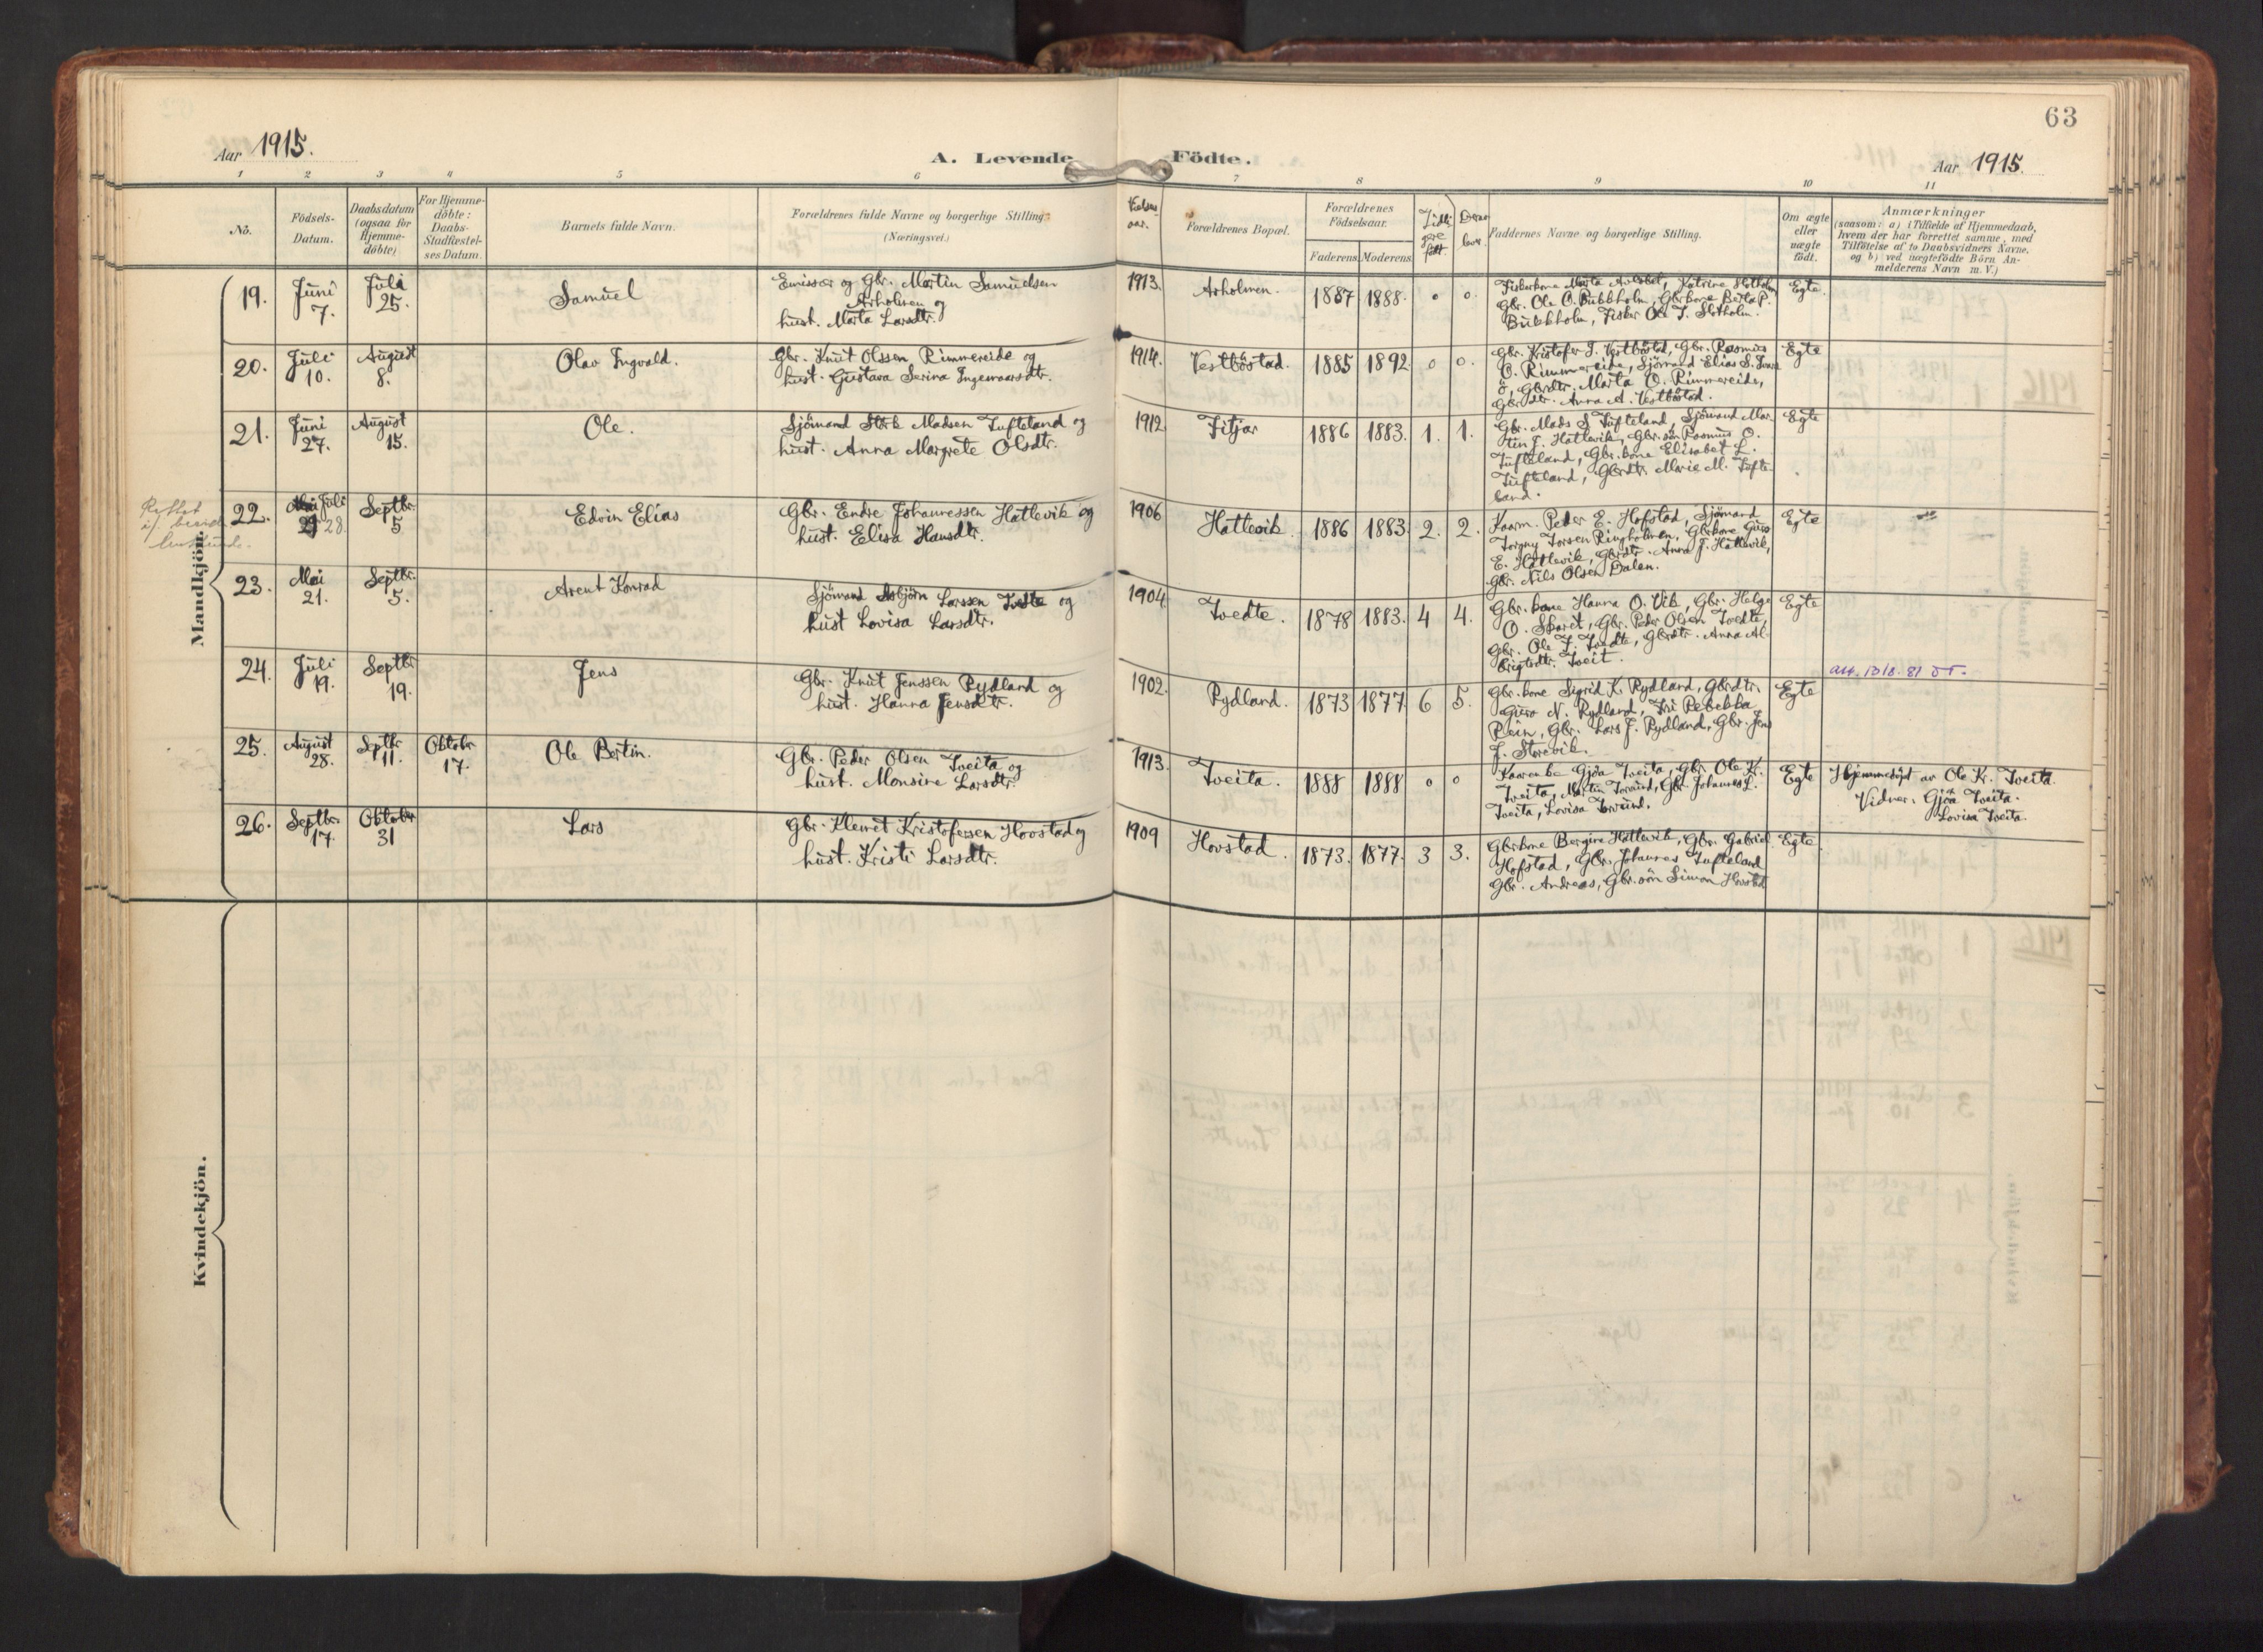 63
Aar 1915.
A. Levende Födte.
Aar 1915.
1 2 3 4 5 6 7 8 9 10 11
No.
Födsels-
Datum.
Daabsdatum
(ogsaa for
Hjemme-
döbte)
For Hjemme-
döbte:
Daabs-
Stadfæstel-
ses Datum.
Barnets fulde Navn.
Forældrenes fulde Navne og borgerlige Stilling.
(Næringsvei.)
Vielses-
aar.
Forældrenes Bopæl.
Forældrenes
Födselsaar.
Faderens Moderens
Tidli-
gere
födt.
Derav
lever
Faddernes Navne og borgerlige Stilling.
Om ægte
eller
uægte
födt.
Anmærkninger
(saasom: a) i Tilfælde af Hjemmedaab,
hvem der har forrettet samme, med
Tilföielse af to Daabsvidners Navne.
og b) ved uægtefödte Börn An-
melderens Navn m. V.)
Mandkjön.
19.
Juni
7.
Juli
25.
Samuel
Emissær og Gbr. Martin Samuelsen
Arholmen og
hust. Marta Larsdtr.
1913.
Arholmen.
1887 1888. 0 0.
Fiskerkone Marta Katrine Slotholm
Gbr. Ole O. Bukkholm, Gbrkone Berta P.
Bukkholm, Fisker Ole J. Slotholm.
Egte.
20.
Juli
10.
August
8.
Olav Ingvald.
Gbr. Knut Olssen Rimmereide og
hust. Gustava Serina Ingemarsdtr.
1914.
Vestböstad.
1885 1892 0 0.
Gbr. Kristofer J. Vestböstad, Gbr. Rasmus
O. Rimmereide, Sjömand Elias S.
ö, Gbrdtr. Marta O. Rimmereide,
Gbrdtr. Anna A. Vestböstad.
Egte
21.
Juni
27.
August
15.
Ole.
Sjömand Störk Madsen Tufteland og
hust. Anna Margrete Olsdtr.
1912
Fitjar
1886 1883. 1. 1.
Gbr. Mads S. Tufteland, Sjömand Mar-
tin J. Hatlevik, Gbr.sön Rasmus O.
Tufteland, Gbr.kone Elisabet L.
Tufteland, Gbrdtr. Marie M. Tufte-
land.
Egte
22.
Juli
28.
Septbr.
5
Edvin Elias
Gbr. Endre Johannessen Hatlevik og
hust. Elisa Hansdtr.
1906
Hatlevik
1886 1883 2. 2.
Kaarm. Peder E. Hofstad, Sjömand
Torgny Torsen Ringholmen, Gbrkone Guro
E. Hatlevik, Gbrdtr. Anna J. Hatlevik,
Gbr. Nils Olsen Dalen.
Egte
Rettet
23.
Mai
21.
Septbr.
5.
Arent Konrad
Sjömand Asbjörn Larssen Tvedte og
hust Lovisa Larsdtr.
1904
Tvedte.
1878 1883. 4 4.
Gbr.kone Hanna O. Vik, Gbr. Helge
O. Skaret, Gbr. Peder Olsen Tvedte,
Gbr. Ole J. Tvedte, Gbrdtr. Anna Al-
brigtsdtr. Tveit.
Egte
24.
Juli
19.
Septbr
19.
Jens
Gbr. Knut Jenssen Rydland og
hust. Hanna Jensdtr.
1902.
Rydland.
1873 1877 6 5.
Gbr.kone Sigrid K. Rydland, Gbrdtr.
Guro N. Rydland, Fri Rebekka
Rein, Gbr. Lars J. Rydland, Gbr. Jens
J. Storevik.
Egte
att. 13/8. 81
25.
August
28.
Septbr.
11.
Oktobr.
17.
Ole Bertin.
Gbr. Peder Olsen Tveita og
hust. Monsine Larsdtr.
1913.
Tveita.
1888 1888 0 0
Gjöa Tveita, Gbr. Ole K.
Tveita, Martin Gbr Johannes L.
Tveita, Lovisa
Egte
Hjemmedöpt av Ole Kr. Tveita.
Vidner: Gjöa Tveita.
Lovisa Tveita.
26.
Septbr.
17.
Oktober
31
Lars
Gbr. Klemet Kristofersen Hovstad og
hust. Kristi Larsdtr.
1909
Hovstad.
1873. 1877. 3 3.
Gbrkone Bergine Hatlevik, Gbr. Gabriel
Hofstad, Gbr. Johannes Tufteland
Gbr. Andreas, Gbr.sön Simon Hovstad
Egte.
Kvindekjön.